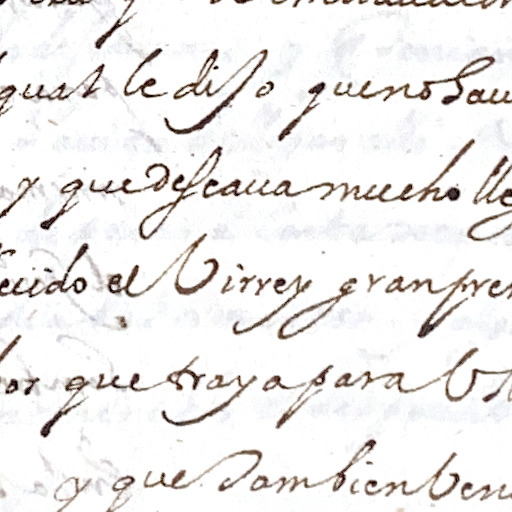 qual le dijo que no hau
y que deseaua mucho lle
ecido el Virrey gran pre
los que traya para V
y que tambien Ven